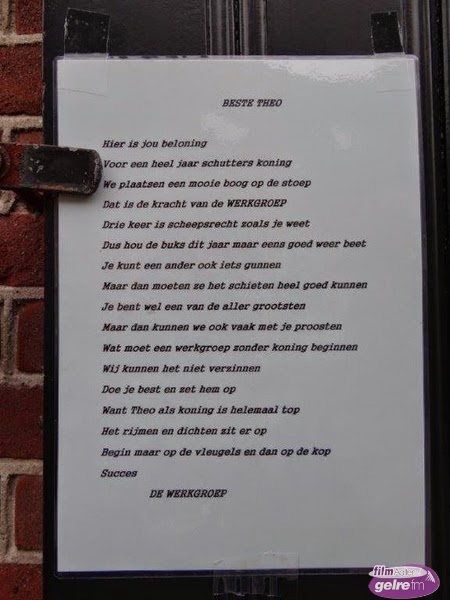 BESTE THEO
Hier is jou beloning
Voor een heel jaar schutters koning
We plaatsen een mooie boog op de stoep
Dat is de kracht van de WERKGROEP
Drie keer is scheepsrecht zoals je weet
Dus hou de buks dit jaar maar eens goed weer beet
Je kunt een ander ook iets gunnen
Maar dan moeten ze het schieten heel goed kunnen
Je bent wel een van de aller grootsten
Maar dan kunnen we ook vaak met je proosten
Wat moet een werkgroep zonder koning beginnen
Wij kunnen het niet verzinnen
Doe je best en zet hem op
Want Theo als koning is helemaal top
Het rijmen en dichten zit er op
Begin maar op de vleugels en dan op de kop
Succes
DE WERKGROEP
film
gelre fm